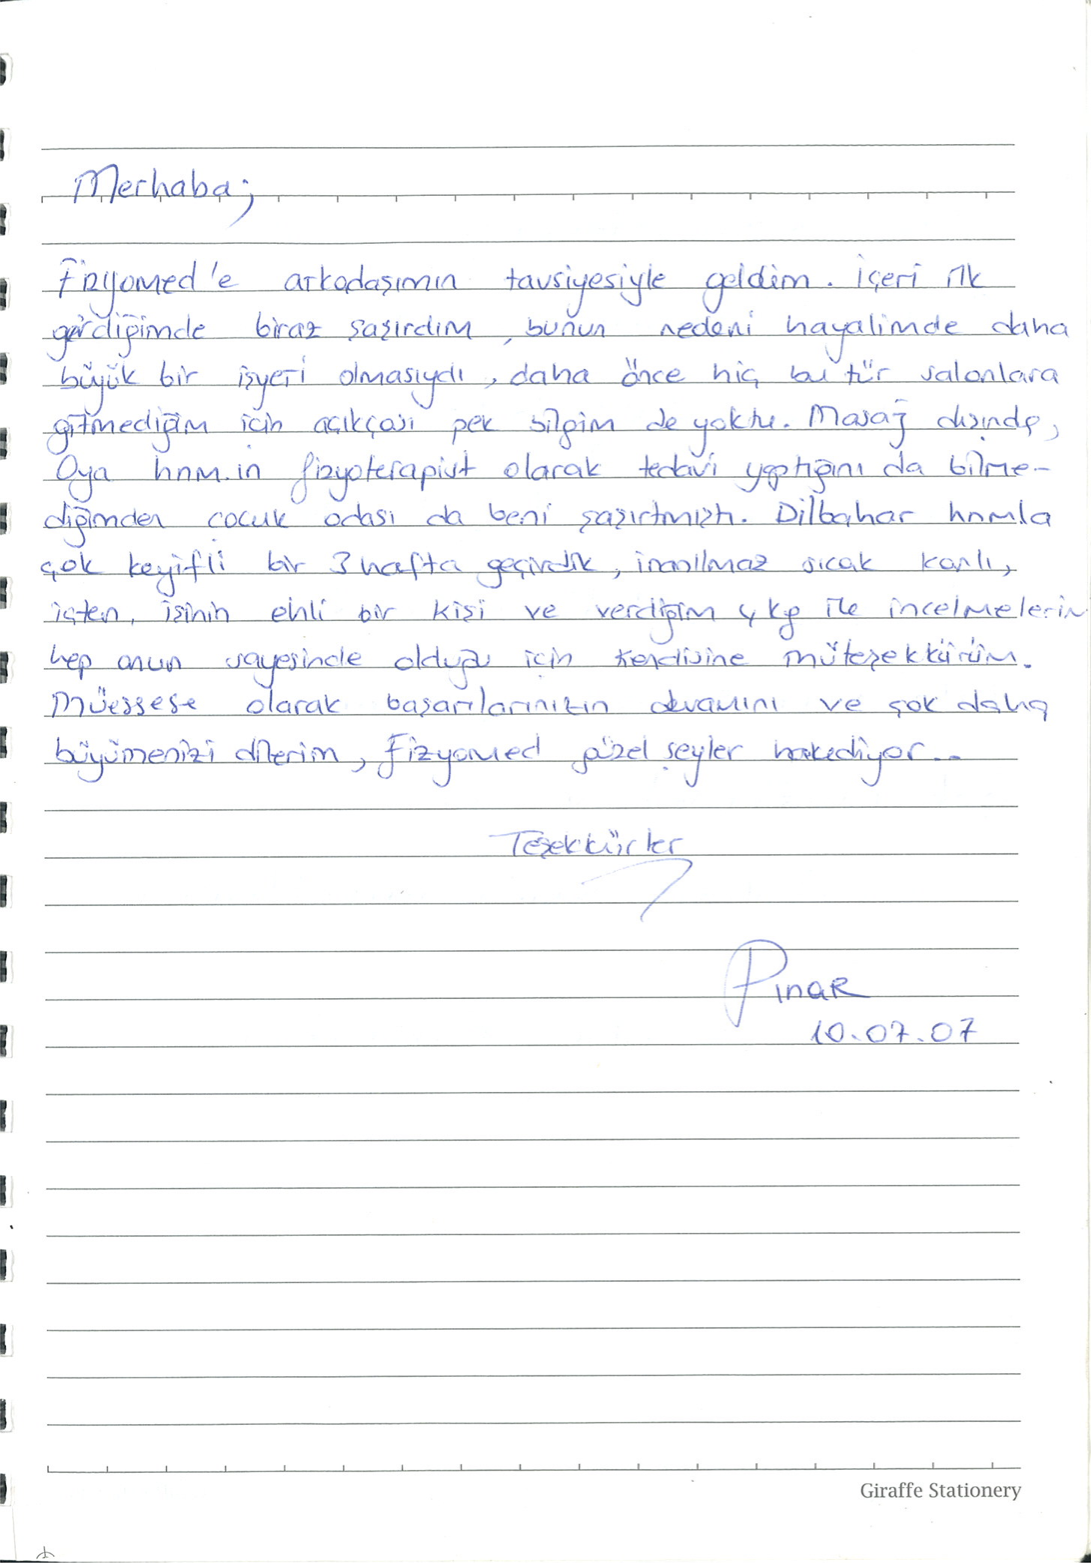 Merhaba;
Fizyomed'e arkadaşımın tavsiyesiyle geldim. İçeri ilk
girdiğimde biraz şaşırdım, bunun nedeni hayalimde daha
büyük bir işyeri olmasıydı, daha önce hiç bu tür salonlara
gitmediğim için açıkçası pek bilgim de yoktu. Masaj dışında,
Oya hnm.ın fizyoterapist olarak tedavi yaptığını da bilme-
diğimden çocuk odası da beni şaşırtmıştı. Dilbahar hnmla
çok keyifli bir 3 hafta geçirdik, inanılmaz sıcak kanlı,
içten, işinin ehli bir kişi ve verdiğim 4 kg ile incelmelerin
hep onun sayesinde olduğu için kendisine müteşekkürüm.
Müessese olarak başarılarınızın devamını ve çok daha
büyümenizi dilerim, Fizyomed güzel şeyler hakediyor..
Teşekkürler
Pınar
10.07.07
Giraffe Stationery